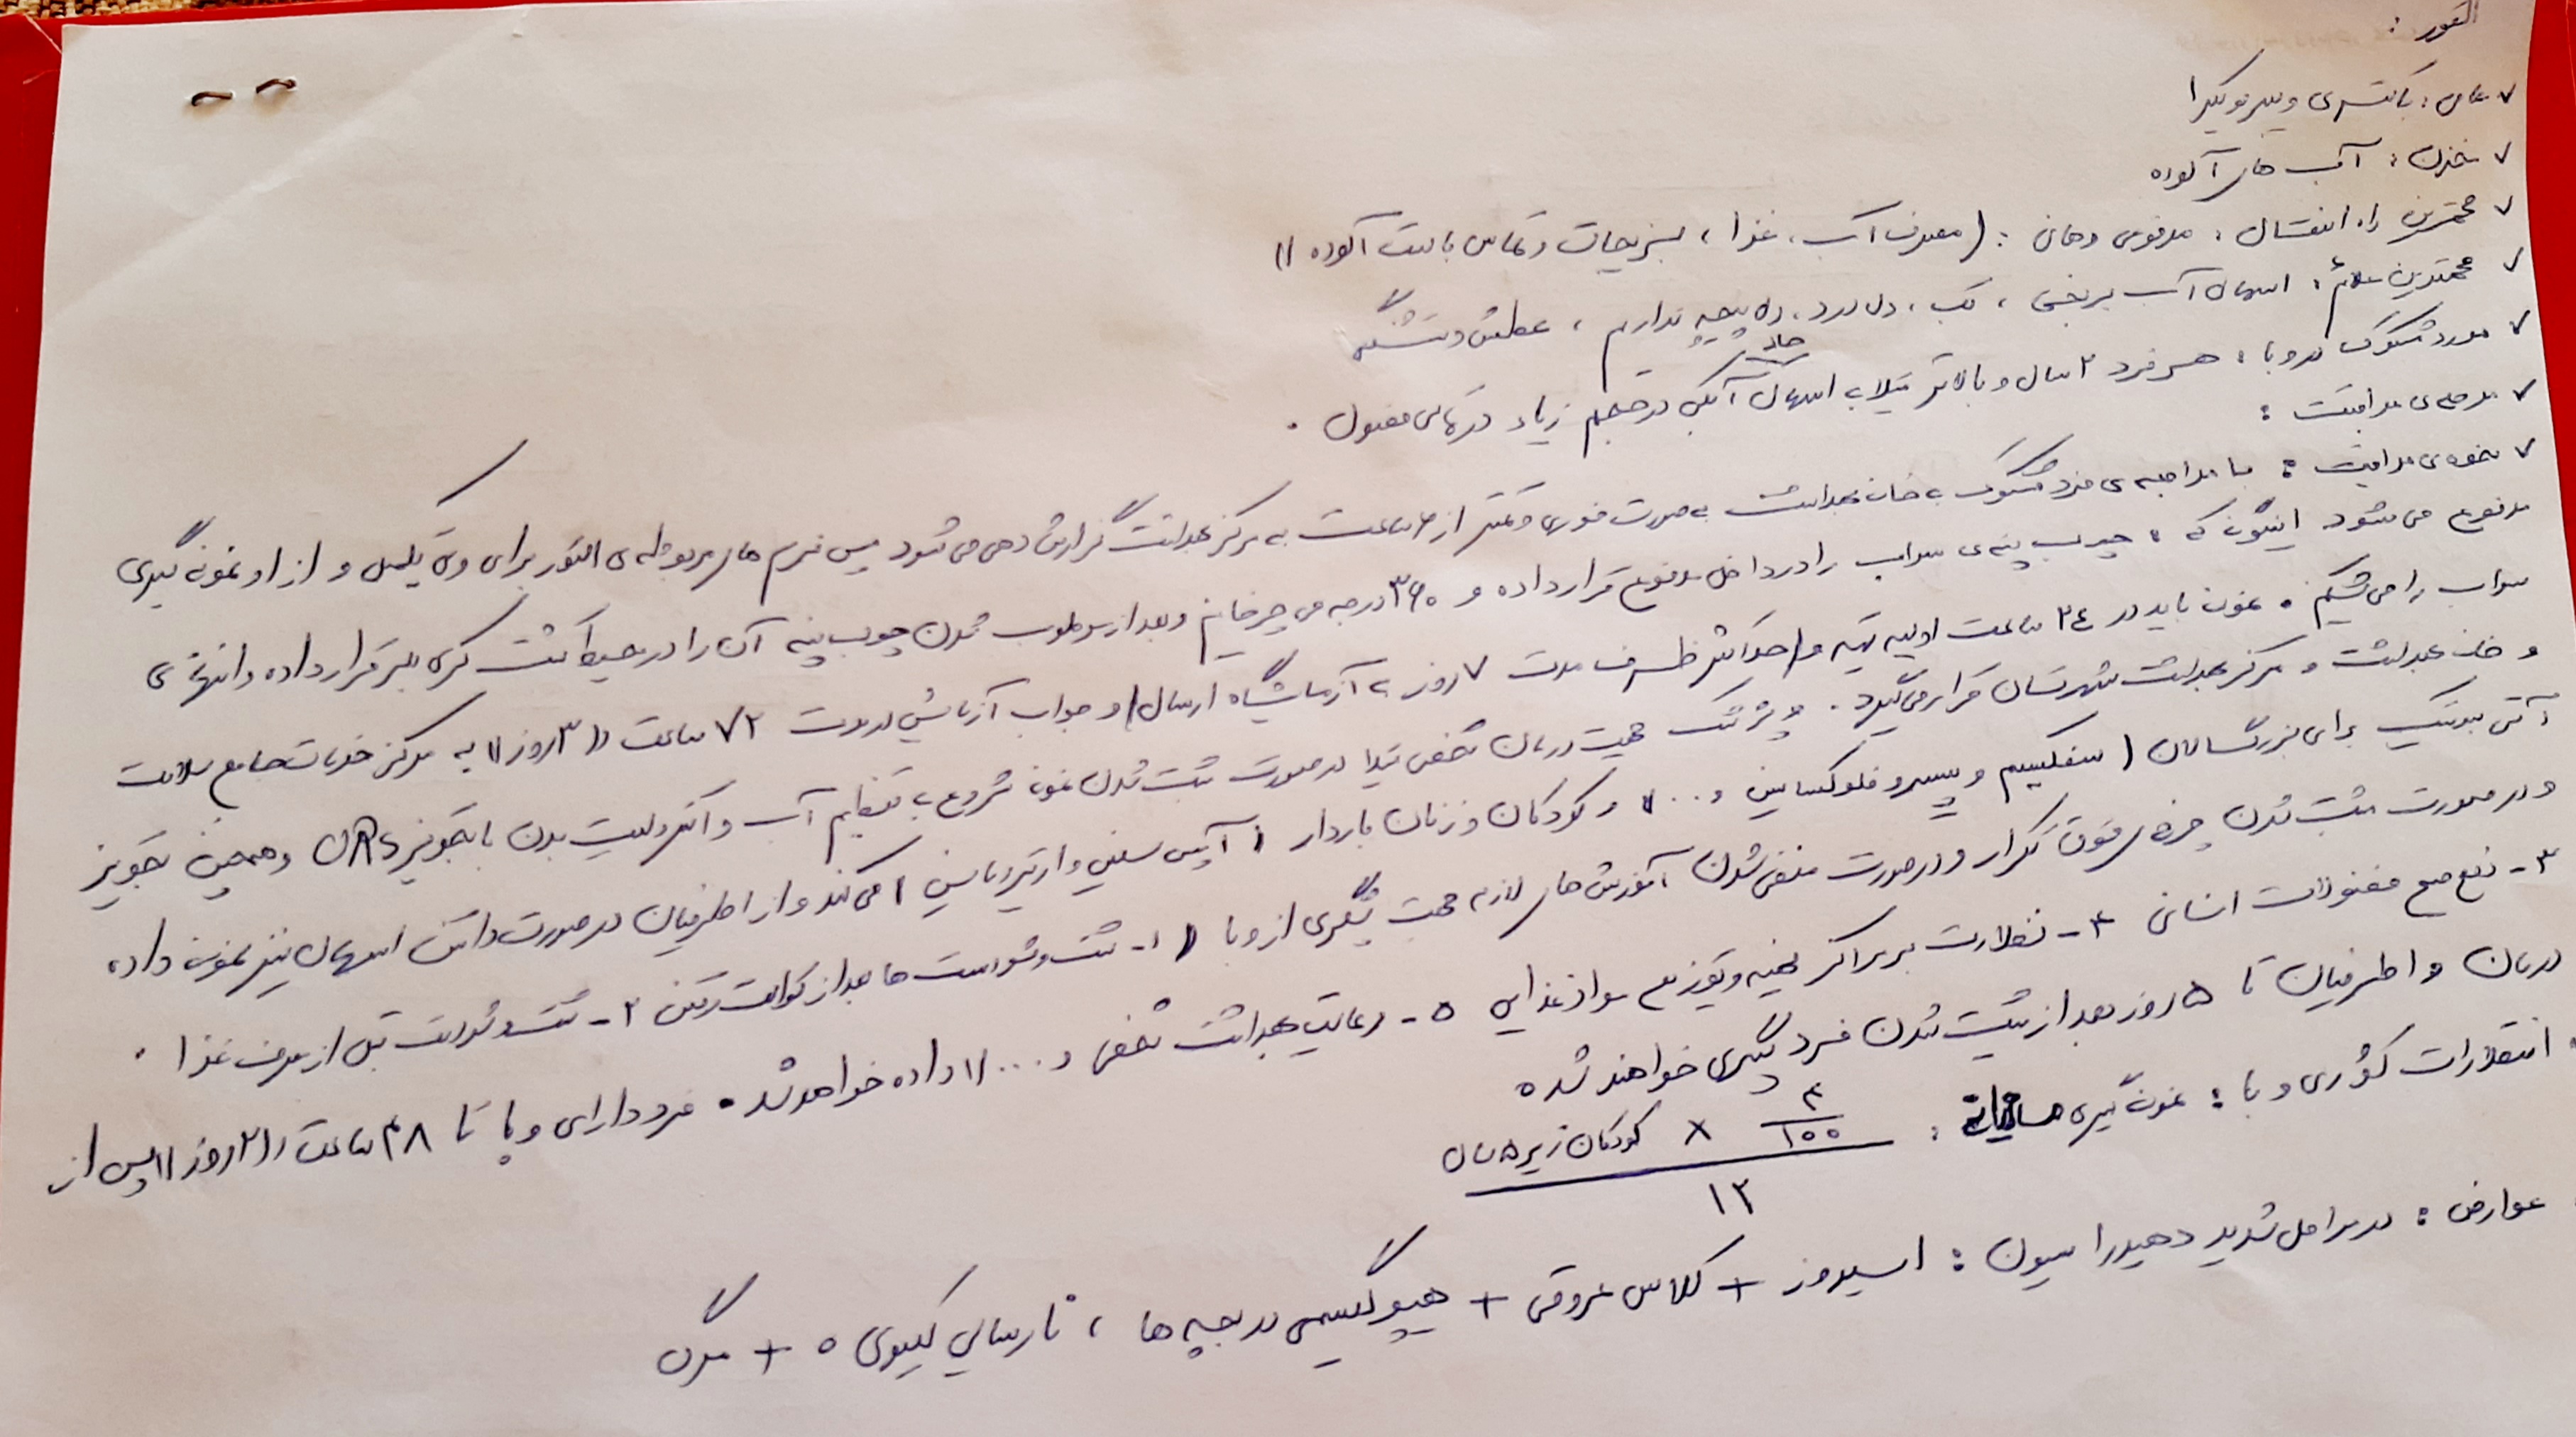 التور :
✓ عامل : باکتری ویبریوکلرا
✓ مخزن : آب های آلوده
✓ مهمترین راه انتقال : مدفوعی دهانی : (مصرف آب ، غذا ، سبزیجات و تماس با دست آلوده))
✓ مهمترین علائم : اسهال آب برنجی ، تب ، دل درد ، دل پیچه نداریم ، عطش و تشنگی
✓ مورد مشکوک به وبا : هر فرد ۲ سال و بالاتر مبتلا به اسهال حاد آبکی در حجم زیاد در تماس فصول .
✓ مراقبت :
✓ نحوه ی مراقبت : با مراجعه ی فرد مشکوک به خانه بهداشت به صورت فوری و کمتر از ساعت به مرکز بهداشت گزارش دهی می شود پس فرم های مربوطه ی التور برای وی تکمیل و از او نمونه گیری
مدفوع می شود اینگونه که : چوب پنبه ی سواب را در داخل مدفوع قرار داده و ۳۶۰ درجه می چرخانیم و بعد از مرطوب شدن چوب پنبه آن را در محیط کشت کری بلر قرار داده و انتهای
سواب را می شکنیم . نمونه باید در ۲۴ ساعت اولیه تهیه و (حداکثر ظرف مدت ۷ روز به آزمایشگاه ارسال) و جواب آزمایش در مدت ۷۲ ساعت ((۳ روز)) به مرکز خدمات جامع سلامت
و خانه بهداشت و مرکز بهداشت شهرستان قرار می گیرد . پزشک جهت درمان شخص مبتلا در صورت مثبت شدن نمونه شروع به تنظیم آب و الکترولیت بدن با تجویز ORS و همچنین تجویز
آنتی بیوتیک برای بزرگسالان (سفکسیم و سیپروفلوکساسین و ...)) و کودکان و زنان باردار (آمپی سیلین و اریترومایسین) می کند و از اطرافیان در صورت داشتن اسهال نیز نمونه داده
و در صورت مثبت شدن چرخه فوق تکرار و در صورت منفی شدن آموزش های لازم جهت پیشگیری از وبا ((۱- شست و شو دست ها بعد از توالت رفتن ۲- شست و شو دست قبل از صرف غذا .
۳- دفع صحیح فضولات انسانی ۴- نظارت بر مراکز تهیه و توزیع مواد غذایی ۵- رعایت بهداشت شخصی و ...)) داده خواهد شد . فرد دارای وبا تا ۴۸ ساعت ((۲ روز)) پس از
درمان و اطرافیان تا ۵ روز بعد از مثبت شدن فرد پیگیری خواهند شد .
انتظارات کشوری وبا : نمونه گیری ماهیانه : ۱۰۰ × کودکان زیر ۵ سال
۱۲
عوارض : در مراحل شدید دهیدراسیون : اسیدوز + کلاپس عروقی + هیپوگلیسمی در بچه ها ، نارسایی کلیوی + مرگ